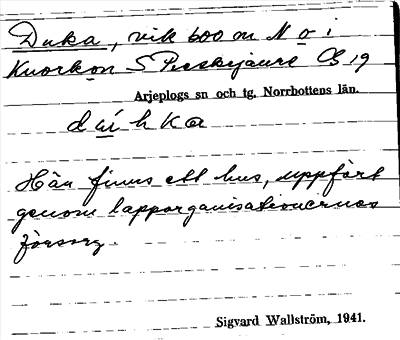 Duka, vik 600 m N o i
Kuorkon S Peskejaure C5 19
Arjeplogs sn och tg. Norrbottens län.
dúhka
Här finns ett hus, uppfört
genom lapporganisationernas
försorg.
Sigvard Wallström, 1941.